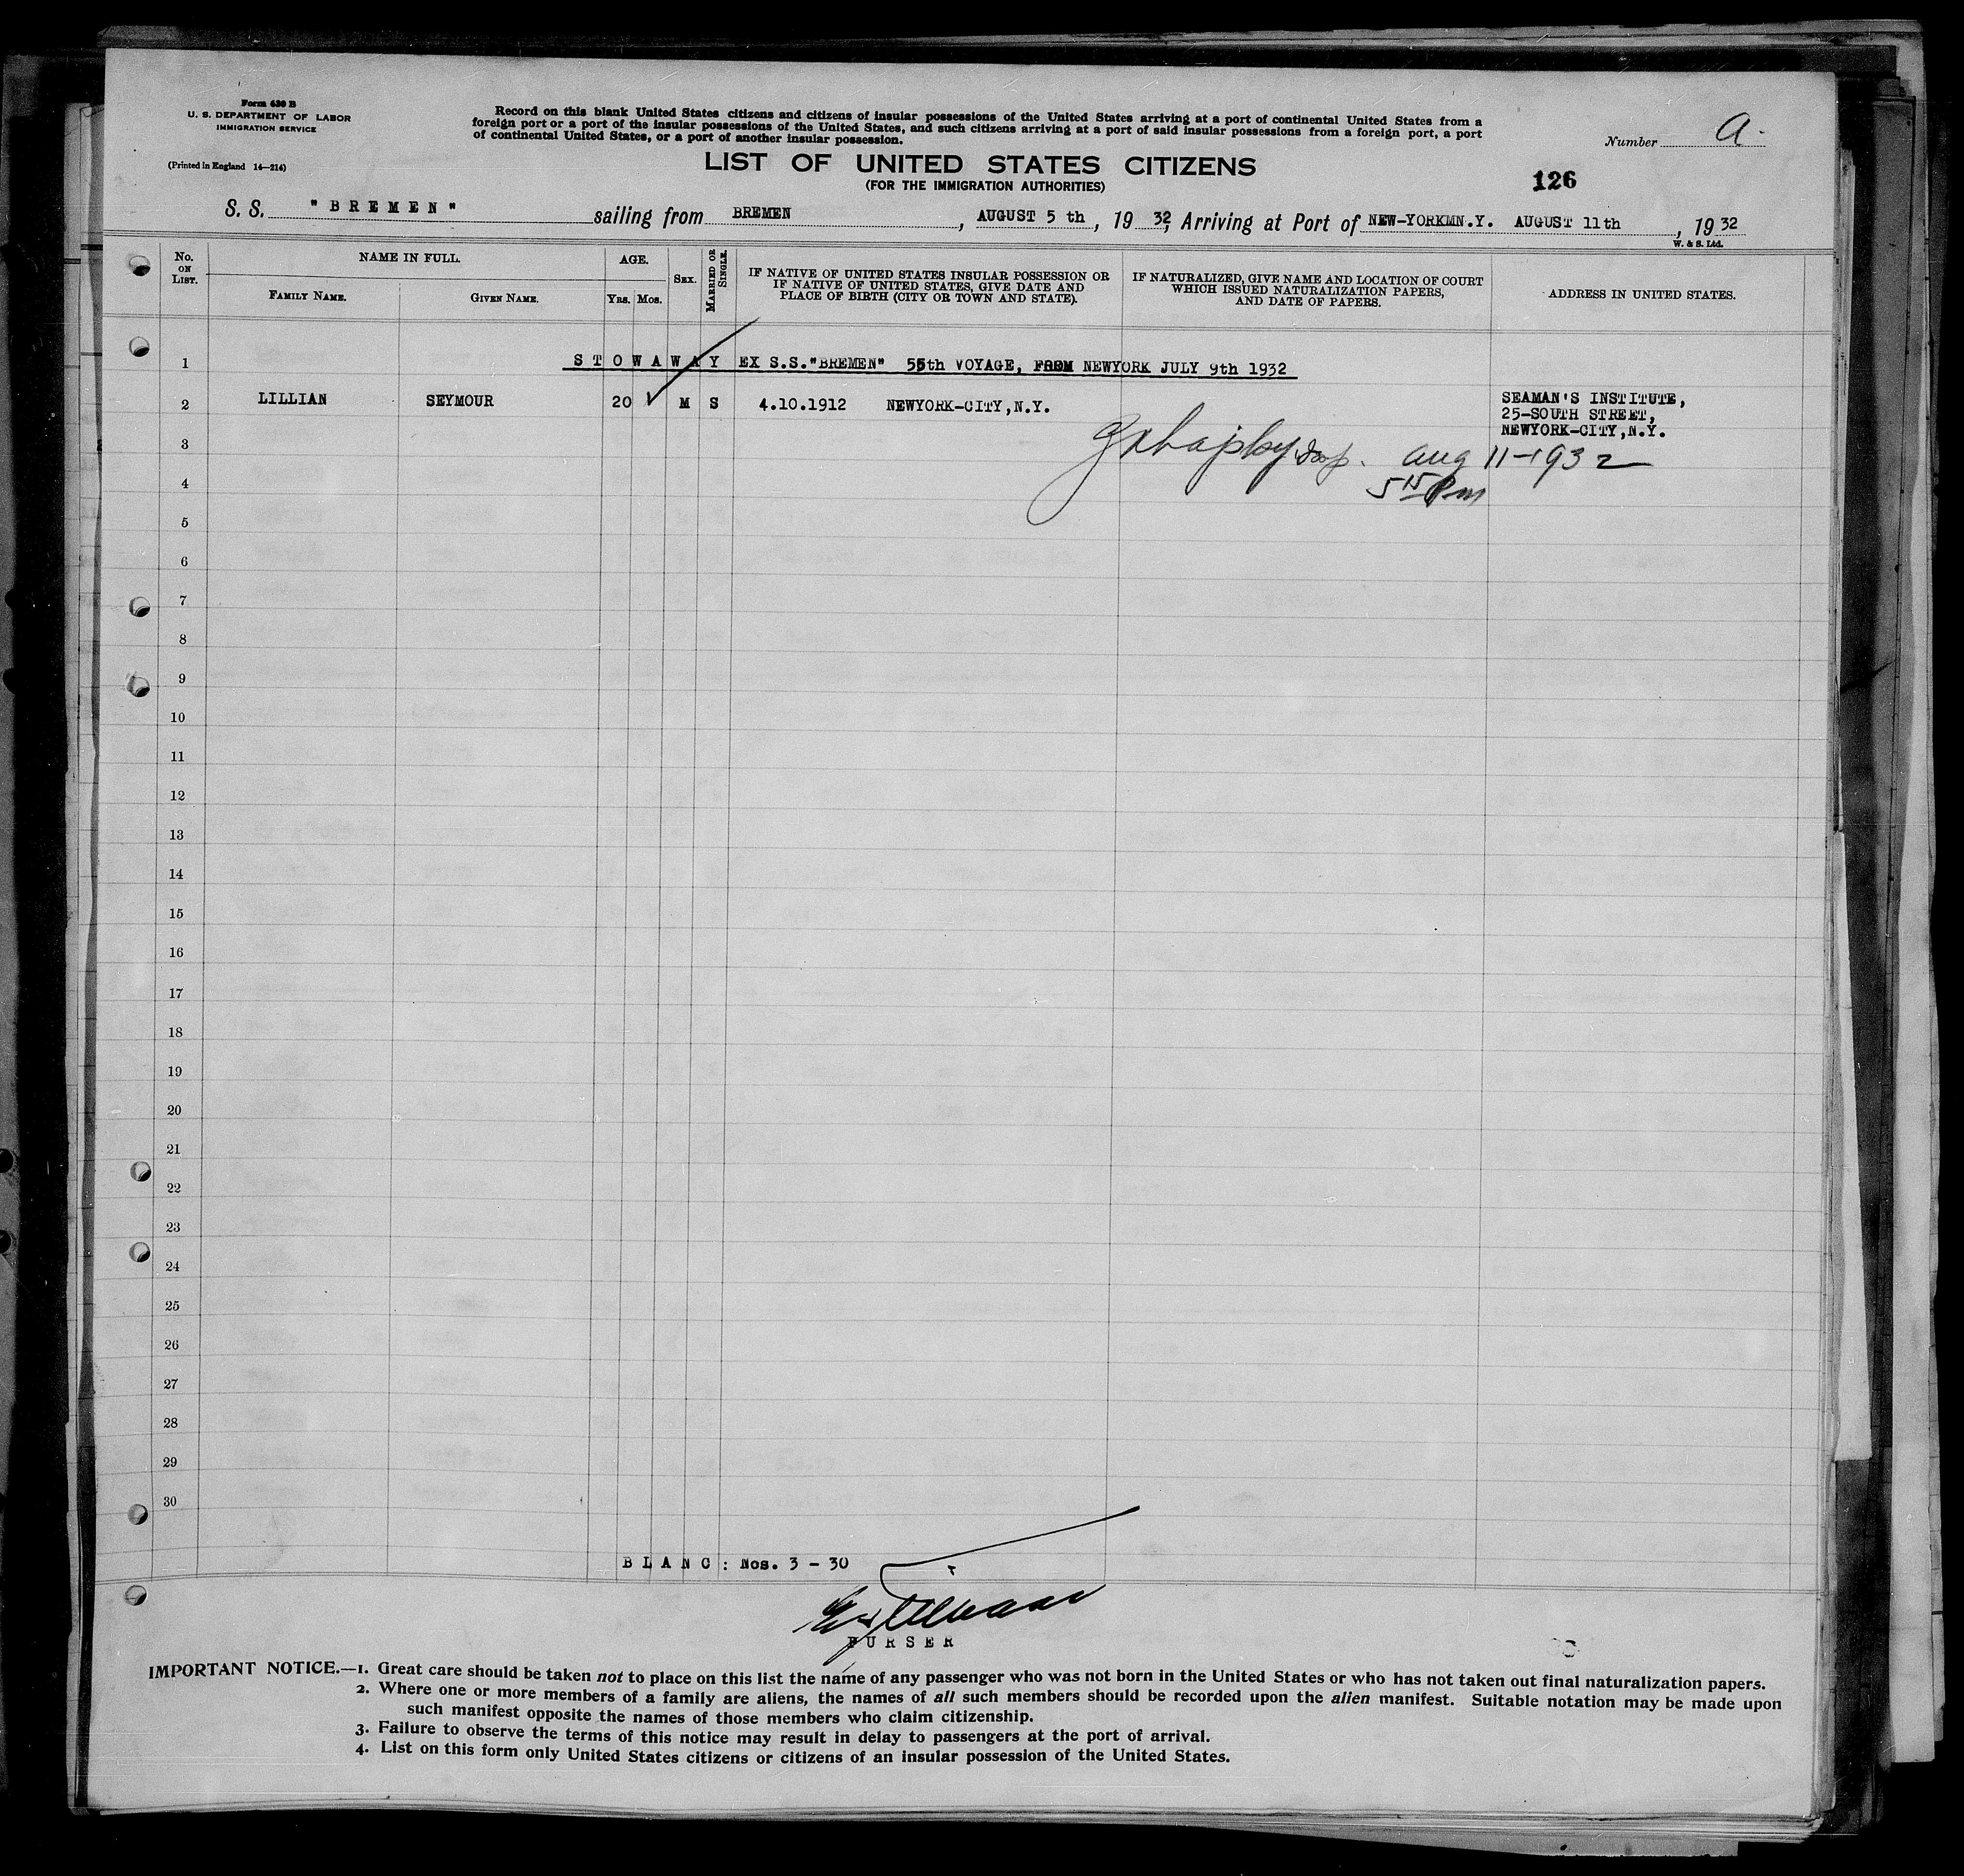 Form 630 B
U. S. DEPARTMENT OF LABOR
IMMIGRATION SERVICE
(Printed in England 14—214)
Record on this blank United States citizens and citizens of insular possessions of the United States arriving at a port of continental United States from a
foreign port or a port of the insular possessions of the United States, and such citizens arriving at a port of said insular possessions from a foreign port, a port
of continental United States, or a port of another insular possession.
Number A.
LIST OF UNITED STATES CITIZENS
(FOR THE IMMIGRATION AUTHORITIES)
126
S. S. "BREMEN" sailing from BREMEN, AUGUST 5 th, 19 32, Arriving at Port of NEW-YORKMN.Y. AUGUST 11th, 19 32
W. & S. Ltd.
No. ON LIST.
NAME IN FULL.
FAMILY NAME.
GIVEN NAME.
AGE.
YRS.
MOS.
SEX.
MARRIED OR SINGLE.
IF NATIVE OF UNITED STATES INSULAR POSSESSION OR
IF NATIVE OF UNITED STATES, GIVE DATE AND
PLACE OF BIRTH (CITY OR TOWN AND STATE).
IF NATURALIZED, GIVE NAME AND LOCATION OF COURT
WHICH ISSUED NATURALIZATION PAPERS,
AND DATE OF PAPERS.
ADDRESS IN UNITED STATES.
1 STOWAWAY EX S.S."BREMEN" 55th VOYAGE, FROM NEWYORK JULY 9th 1932
2 LILLIAN SEYMOUR 20 M S 4.10.1912 NEWYORK-CITY,N.Y.
SEAMAN'S INSTITUTE,
25-SOUTH STREET,
NEWYORK-CITY,N.Y.
3
Insp. Aug 11-1932
4
5 15 Pm
5
6
7
8
9
10
11
12
13
14
15
16
17
18
19
20
21
22
23
24
25
26
27
28
29
30
BLANC: Nos. 3 - 30
PURSER
IMPORTANT NOTICE.—1. Great care should be taken not to place on this list the name of any passenger who was not born in the United States or who has not taken out final naturalization papers.
2. Where one or more members of a family are aliens, the names of all such members should be recorded upon the alien manifest. Suitable notation may be made upon
such manifest opposite the names of those members who claim citizenship.
3. Failure to observe the terms of this notice may result in delay to passengers at the port of arrival.
4. List on this form only United States citizens or citizens of an insular possession of the United States.